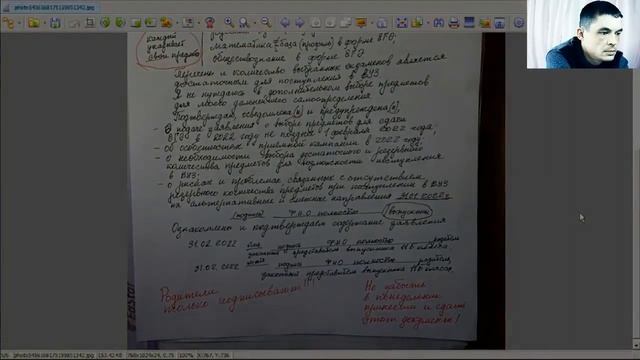 photo5436368171139851342.jpg
каждый
указывает
свои предметы
математика база (профиль) в форме ЕГЭ;
обществознание в форме ЕГЭ
Перечень и количество выбранных экзаменов является
достаточным для поступления в ВУЗ
Я не нуждаюсь в дополнительном выборе предметов
для моего дальнейшего самоопределения
Подтверждаю, осведомлена(н) и предупреждена(н)
- о подаче заявления о выборе предметов для сдачи
ЕГЭ в 2022 году не позднее 1 февраля 2022 года;
- об особенностях приемной кампании в 2022 году;
- о необходимости выбора достаточного и резервного
количества предметов для возможности поступления
в ВУЗ;
- о рисках и проблемах связанных с отсутствием
резервного количества предметов при поступлении в ВУЗ
на альтернативные и смежные направления 31.01.2022г
(подпись) Ф.И.О полностью (выпускник)
Ознакомлены и подтверждаем содержание заявления
31.02.2022 подпись ФИО полностью родитель
законный представитель выпускника 11б класса
31.02.2022 подпись ФИО полностью родитель,
законный представитель выпускника 11б класса
Родители
только подписывают!!!
Не забыть
в понедельник
принести и сдать
этот документ!